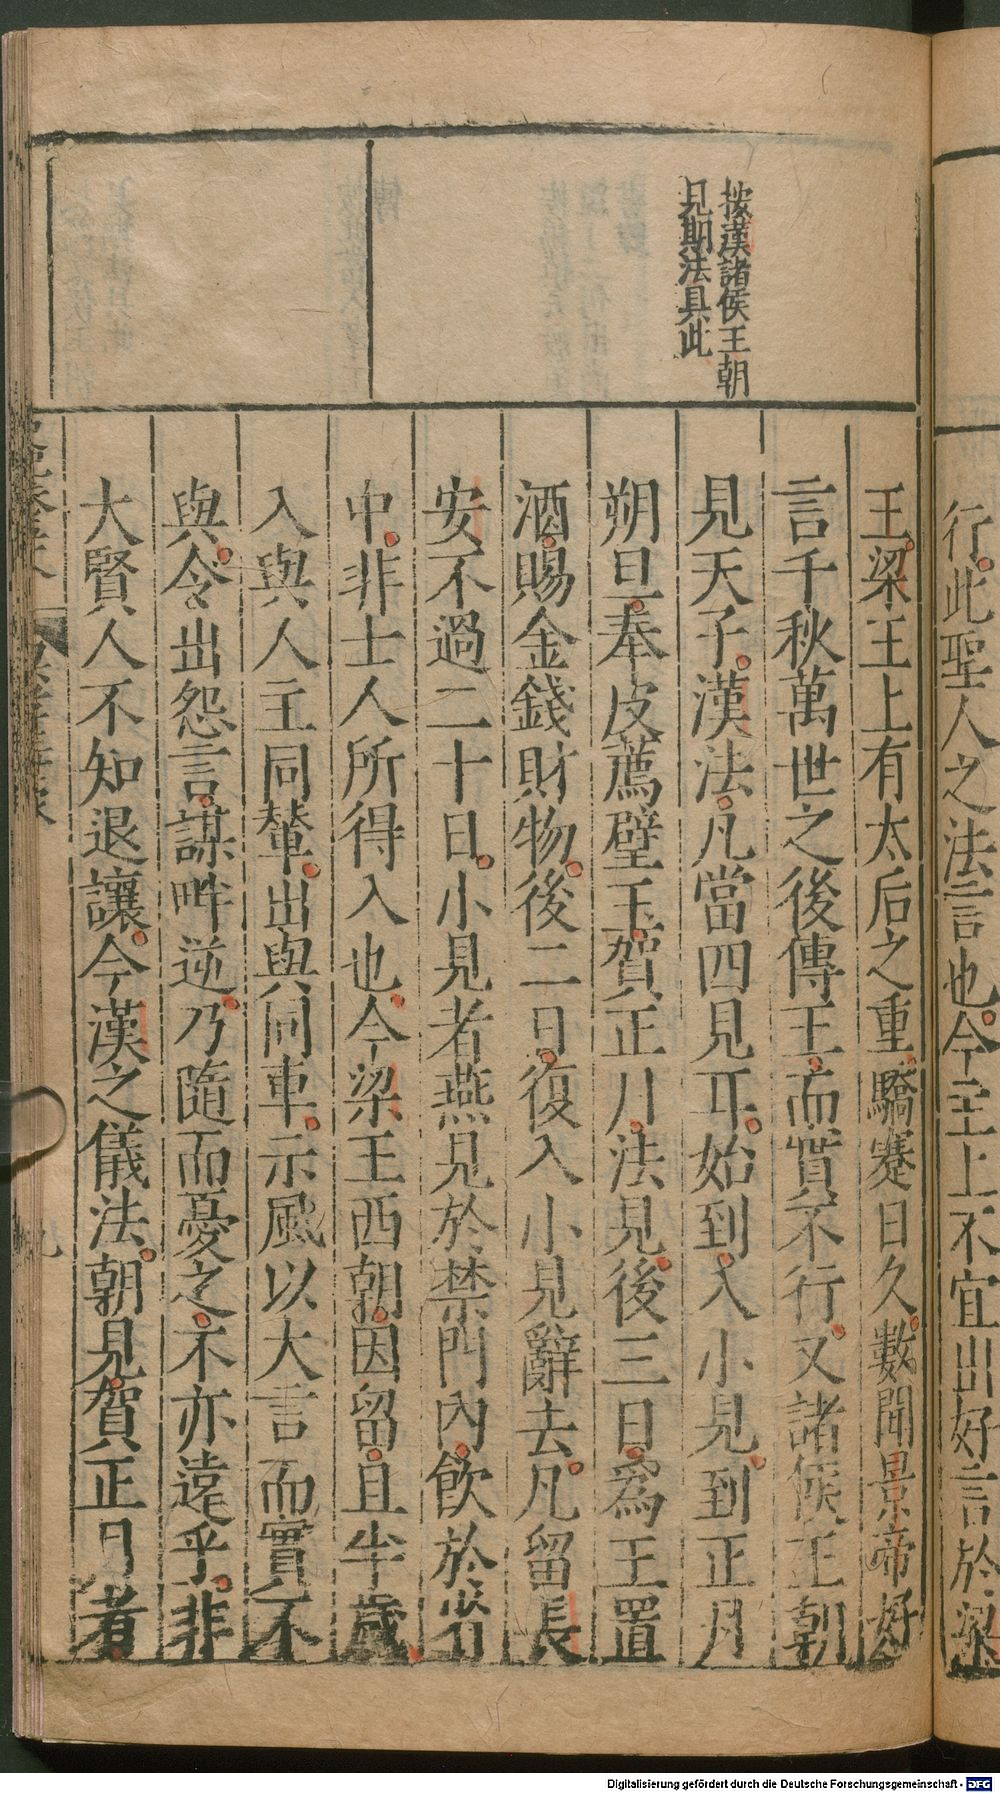 行此聖人之法言也今主上不宜出好言於梁
按漢諸侯王朝
見期法具此
王梁王上有太后之重驕蹇日久數聞景帝好
言千秋萬世之後傳王而實不行又諸侯王朝
見天子漢法凡當四見耳始到入小見到正月
朔旦奉皮薦璧玉賀正月法見後三日為王置
酒賜金錢財物後二日復入小見辭去凡留長
安不過二十日小見者燕見於禁門內飲於省
中非士人所得入也今梁王西朝因留且半歲
入與人主同輦出與同車示風以大言而實不
與令出怨言謀畔逆乃隨而憂之不亦遠乎非
大賢人不知退讓今漢之儀法朝見賀正月者
Digitalisierung gefördert durch die Deutsche Forschungsgemeinschaft - DFG